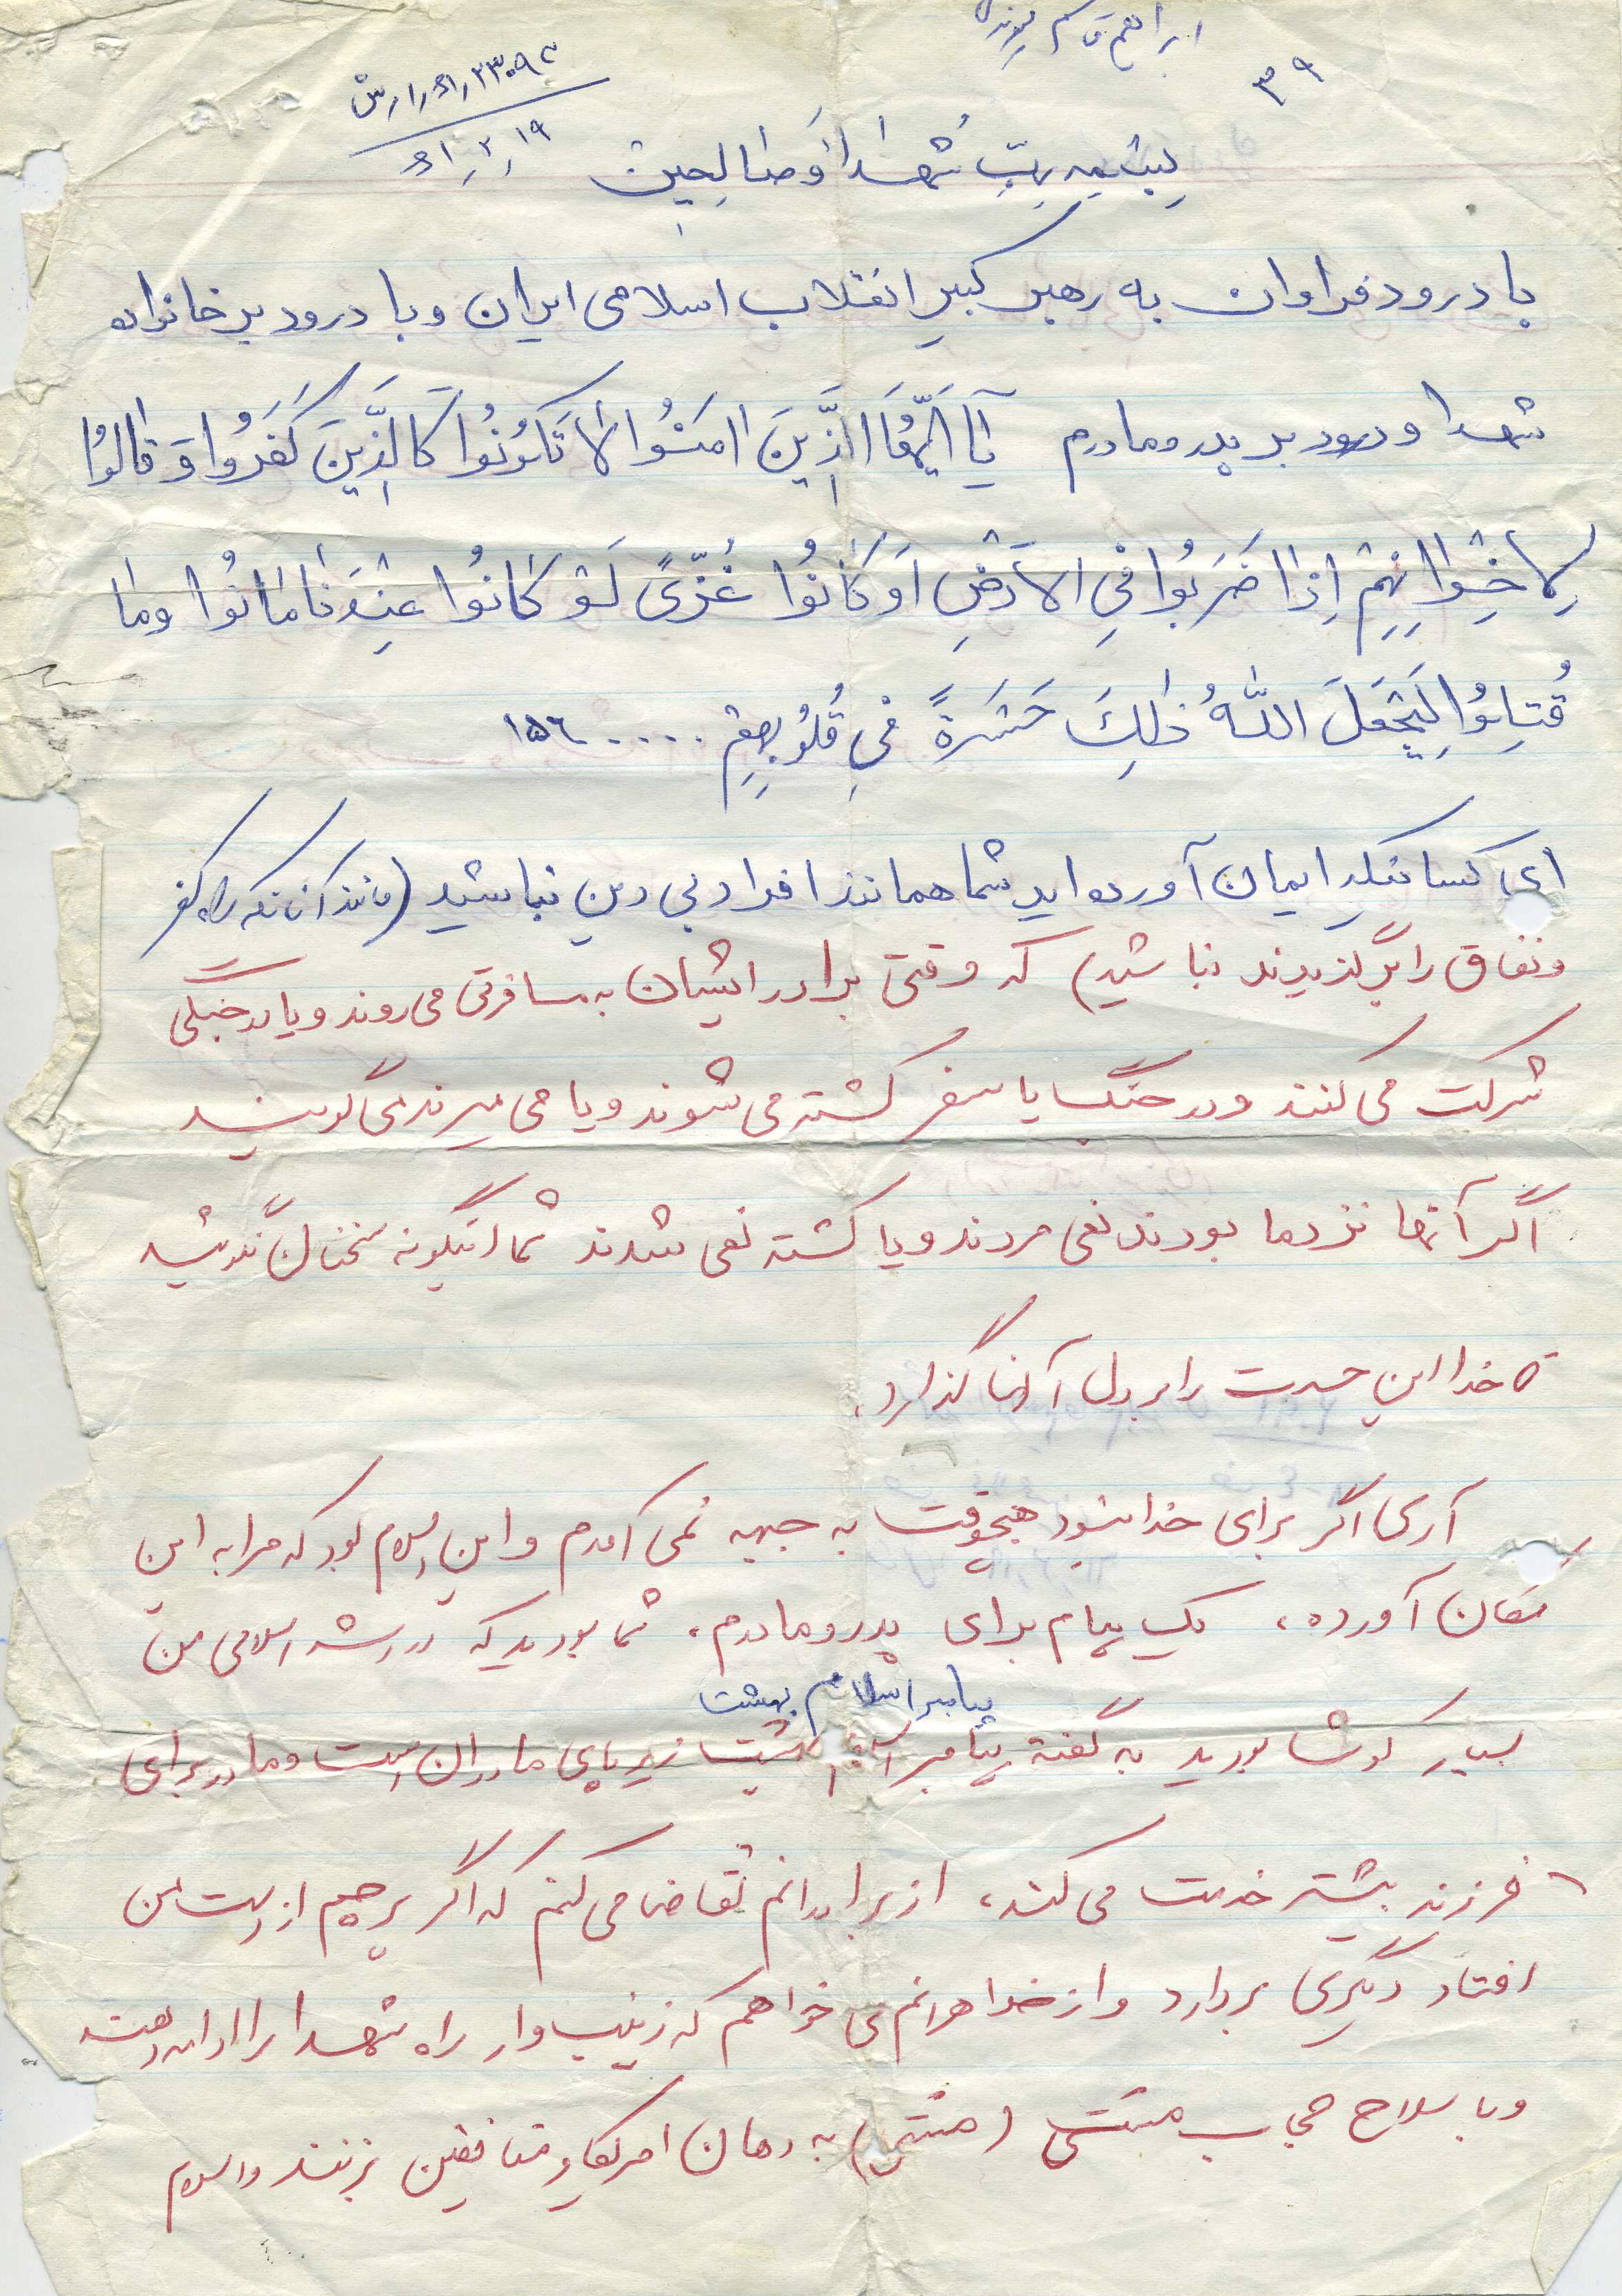 ابراهیم قاسم
۳۹
۶۱٫۲٫۱۹
بِسْمِهِ رَبِّ شُهَدا وَ صٰالِحین
با درود فراوان به رهبر کبیر انقلاب اسلامی ایران و با درود بر خانواده
شهدا و درود بر پدر و مادرم یٰا اَیُّهَا الَّذِینَ اٰمَنُوا لاٰ تَکُونُوا کَالَّذِینَ کَفَرُوا وَ قٰالُوا
لِاِخْوٰانِهِمْ اِذٰا ضَرَبُوا فِی الاَرْضِ اَوْ کٰانُوا غُزًّی لَوْ کٰانُوا عِنْدَنٰا مٰا مٰاتُوا وَمٰا
قُتِلُوا لِیَجْعَلَ اللّٰهُ ذٰلِکَ حَسْرَةً فِی قُلُوبِهِمْ ..... ۱۵۶
ای کسانیکه ایمان آورده اید شما همانند افراد بی دین نباشید (مانند آنانکه راه کفر
و نفاق را برگزیدند نباشید) که وقتی برادرانشان به مسافرتی می روند و یا در جنگی
شرکت می کنند و در جنگ یا سفر کشته می شوند و یا می میرند می گویند
اگر آنها نزد ما بودند نمی مردند و یا کشته نمی شدند شما اینگونه سخنان نگوئید
تا خدا این حسرت را بر دل آنها گذارد.
آری اگر برای خدا نبود هیچوقت به جبهه نمی آمدم و این اسلام بود که مرا به این
مکان آورده، یک پیام برای پدر و مادرم. شما بودید که در رشد اسلامی من
پیامبر اسلام بهشت
بسیار کوشا بودید به گفته پیامبر بهشت زیر پای مادران است و مادر برای
فرزند بیشتر خدمت می کند، از برادرانم تقاضا می کنم که اگر پرچم از دست من
افتاد دیگری بردارد و از خواهرانم می خواهم که زینب وار راه شهدا را ادامه دهند
و با سلاح حجاب مشتی (مشتی) به دهان امریکا و منافقین بزنند والسلام